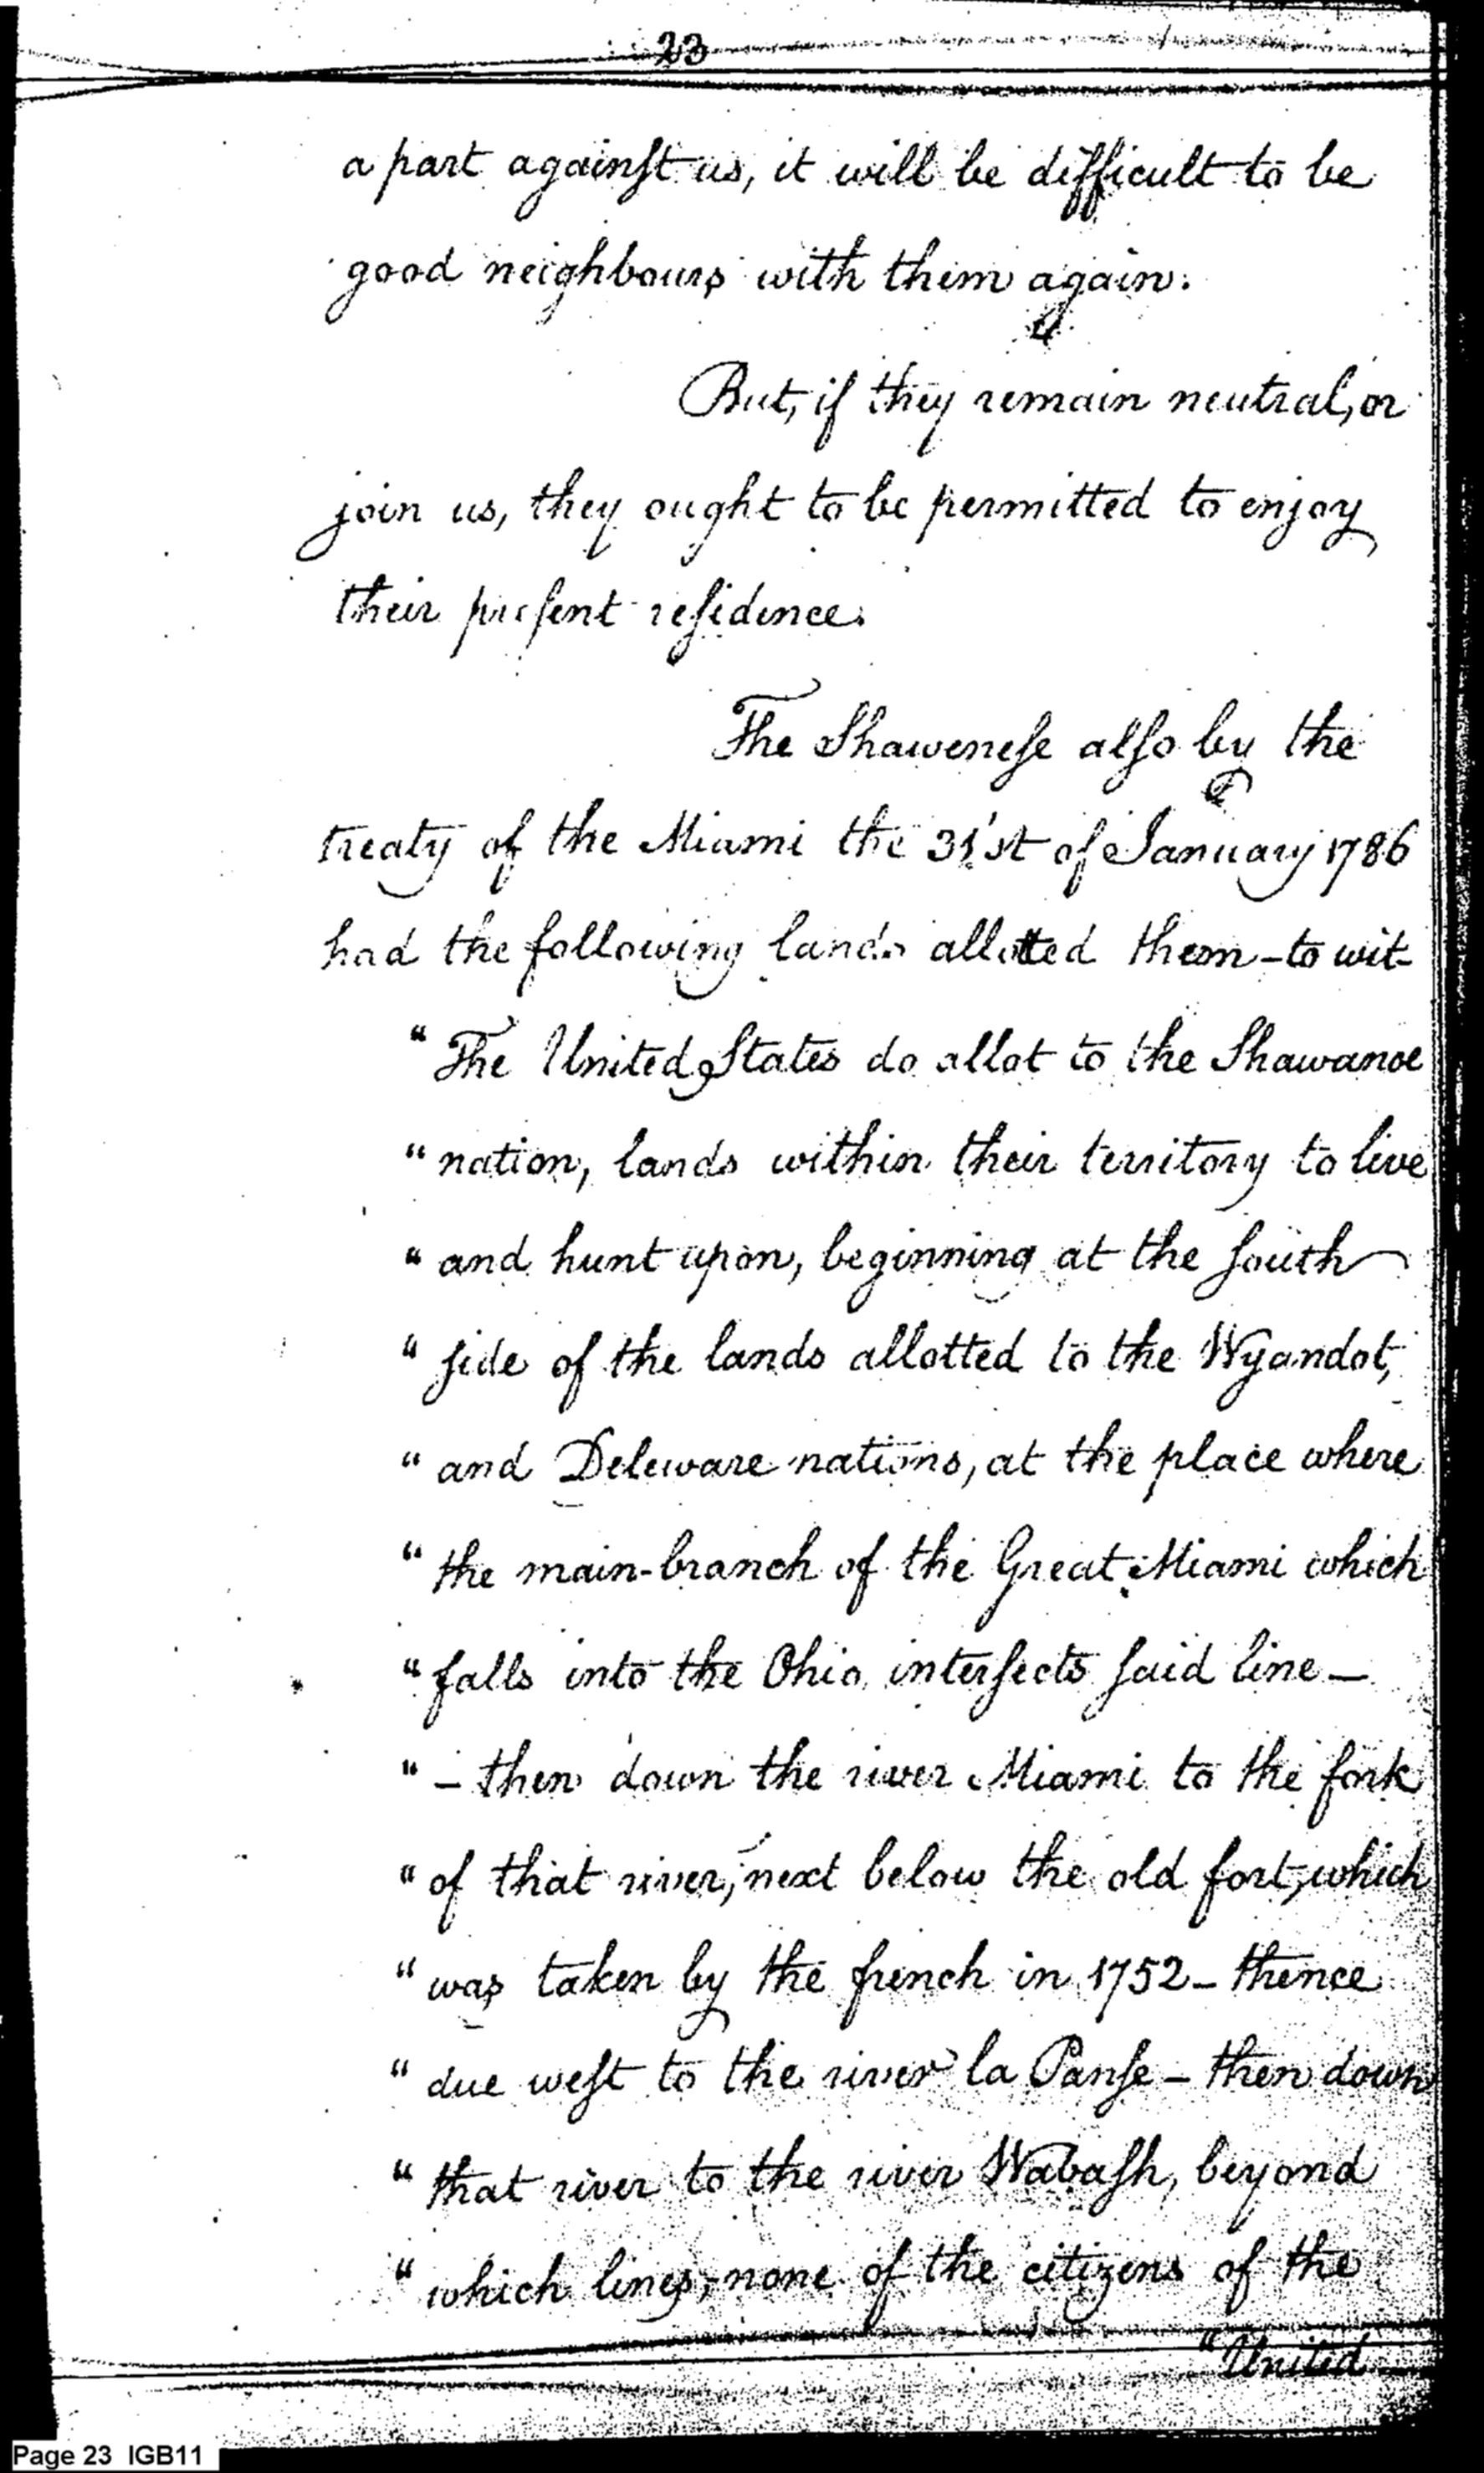 23
a part against us, it will be difficult to be
good neighbours with them again.
But, if they remain neutral, or
join us, they ought to be permitted to enjoy
their present residence.
The Shawenese also by the
treaty of the Miami the 31st of January 1786
had the following lands allotted them - to wit -
"The United States do allot to the Shawanoe
"nation, lands within their territory to live
"and hunt upon, beginning at the south
"side of the lands allotted to the Wyandot,
"and Deleware nations, at the place where
"the main-branch of the Great Miami which
"falls into the Ohio intersects said line —
"— then down the river Miami to the fork
"of that river, next below the old fort, which
"was taken by the french in 1752 — thence
"due west to the river la Panse — then down
"that river to the river Wabash, beyond
"which lines, none of the citizens of the
"United
Page 23 IGB11